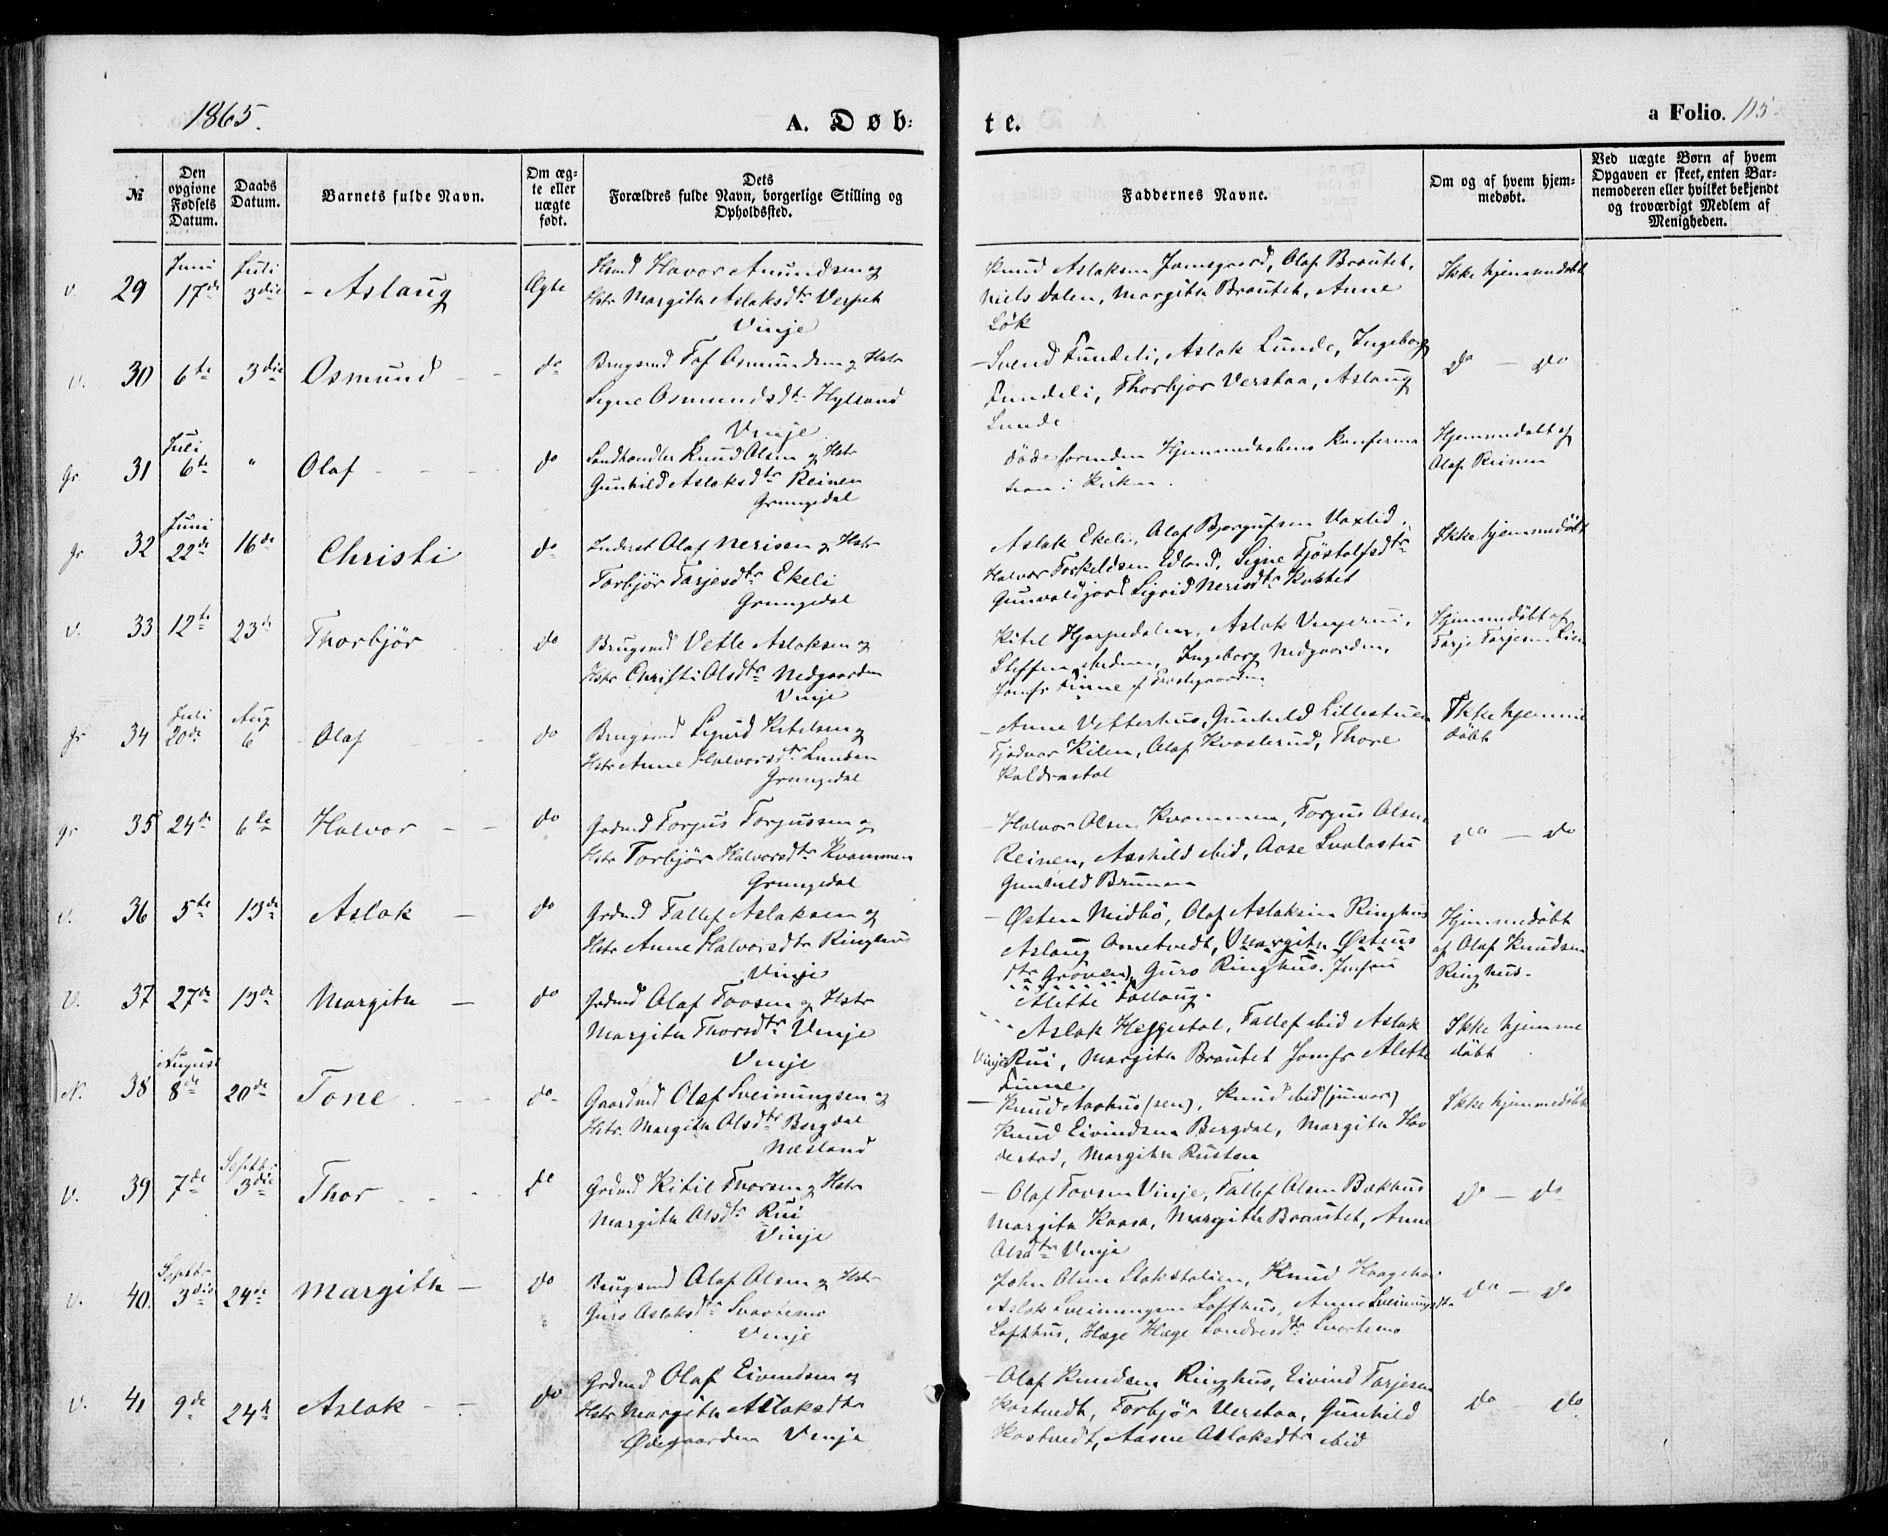 1865.
A. Døb:
te.
a Folio. 115
№
Den opgivne Fødsels Datum.
Daabs Datum.
Barnets fulde Navn.
Om ægte eller uægte født.
Dets Forældres fulde Navn, borgerlige Stilling og Opholdssted.
Faddernes Navne.
Om og af hvem hjemmedøbt.
Ved uægte Børn af hvem Opgaven er skeet, enten Barnemoderen eller hvilket bekjendt og troværdigt Medlem af Menigheden.
v. 29 Juni 17de Juli 3die - Aslaug Ægte
Havor Amundsen og
Hstr Margith Aslaksdtr Verpet
Vinje
Knud Aslaksen Jamsgaard, Olaf Brautet,
Niels Dalen, Margith Brautet, Anne
Løk
Ikke hjemmedøbt
v. 30 6te 3die Osmund do
Brugsmd Taf Osmundsen og Hstr
Signe Osmundsdtr Hylland
Vinje
- Svend Lundeli, Aslak Lunde, Ingeborg
Lundeli, Thorbjør Verstaa, Aslaug
Lunde
do - do
gr 31 Juli 6te " Olaf - do
Landhandler Knud Olsen og Hstr
Gunhild Aslaksdtr Reinen
Grungedal
døde forinden Hjemmedaabens Konferma
tion i Kirken.
Hjemmedøbt af
Olaf Reinen
gr 32 Juni 22de 16de Christi do
Inderst Olaf Nerisen og Hstr
Torbjør Tarjesdtr Ekeli
Grungedal
Aslak Ekeli, Olaf Bjorgufsen Vaxlid,
Halvor Torkeldsen Edland, Signe Tjøstolfsdtr
Gunvaldjord Sigrid Nerisdtr
Ikke hjemmedøbt
v. 33 12te 23de Thorbjør do
Brugsmd Vetle Aslaksen og
Hstr Christi Olsdtr Nedgaarden
Vinje
Kitel Hjerpedalen, Aslak Vinjerui,
Steffen ibidem, Ingeborg Nedgaarden,
Jomfr Finne
Hjemmedøbt af
Tarje Tarjesen Lien
gr 34 Juli 20de Aug 6 - Olaf do
Brugsmd Sigurd Kitelsen og
Hstr Anne Halvorsdtr Lunden
Grungedal
- Anne Vetterhus, Gunhild Lillestuen
Tjodvor Kilen, Olaf Kvosterud, Thore
Ikke hjemme
døbt
gr 35 24de 6te Halvor - - do
Grdmd Torjus Torjussen og
Hstr Torbjør Halvorsdtr Kvammen
Grungedal
- Halvor Olsen Kvammen, Torjus Olsen
Reinen, Aashild ibid, Aase Svalastu
Gunhild Brunnen
do - do
v. 36 5te 13de Aslak - do
Grdmd Tallef Aslaksen og
Hstr Anne Halvorsdtr Ringhus
Vinje
- Østen Midbø, Olaf Aslaksen Ringhus
Aslaug Ometvedt, (Margith Østens
dtr Grøven), Guro Ringhus, Jomfru
Alette Fallaug.
Hjemmedøbt
af Olaf Knudsen
Ringhus.
v. 37 27de 13de Margith - do
Grdmd Olaf Tovsen og Hstr
Margith Thorsdtr Vinje
Vinje
Aslak Heggestol, Tallef ibid Aslak
Rui, Margith Brautet Jomfr Alette
Finne
Ikke hjemme
døbt
N. 38 August 8de 20de Tone do
Gaardmd Olaf Sveinungsen og
Hstr. Margith Olsdtr Bergdal
Næsland
- Knud Aarhus (sen), Knud ibid (junior)
Knud Eivindsen Bergdal, Margith Hav
destad, Margith Rusten
Ikke hjemmedøbt
v. 39 7de Septbr 3die Thor - do
Grdmd Kitil Thorsen og Hstr
Margith Olsdtr Rui
Vinje
- Olaf Tovsen Vinje, Tallef Olsen Bakhus
Margith Kaasa, Margith Brautet, Anne
Olsdtr Vinje
do - do
v. 40. Septbr 3die 24de Margith - do
Brugsmd Olaf Olsen og Hstr
Guro Aslaksdtr Svartemo
Vinje
John Olsen Slokstølien, Knud
Aslak Sveinungsen Lofthus, Anne Sveinungsdtr
Lofthus, Hæge Hæge Sondresdtr Svartemo
do - do
v. 41 9de 24de Aslak - - do
Grdmd Olaf Eivindsen og
Hstr Margith Aslaksdtr
Ødegaarden Vinje
- Olaf Knudsen Ringhus, Eivind Tarjesen
Kostvedt, Torbjør Verstaa, Gunhild
Kostvedt, Aasne Aslaksdtr ibid
do - do.